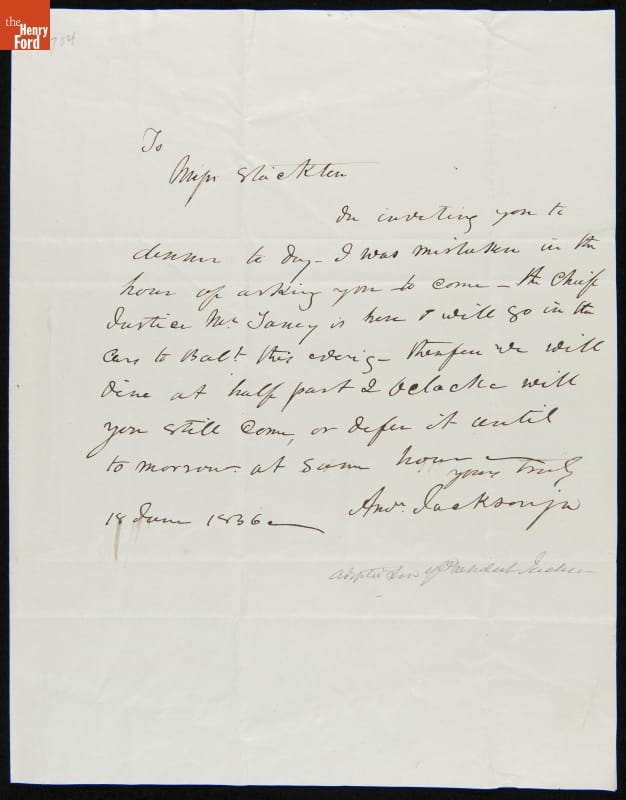 the
Henry
Ford
To
Miss Stockton
In inviting you to
dinner to day - I was mistaken in the
hour of asking you to come - the Chief
Justice Mr. Taney is here & will go in the
Cars to Balt. this evenig - therefore we will
dine at half past 2 Oclock - will
you still come, or defer it until
to morrow - at same hour -
yours truly
Andw. Jackson jr
18 June 1836
adopted Son of President Jackson